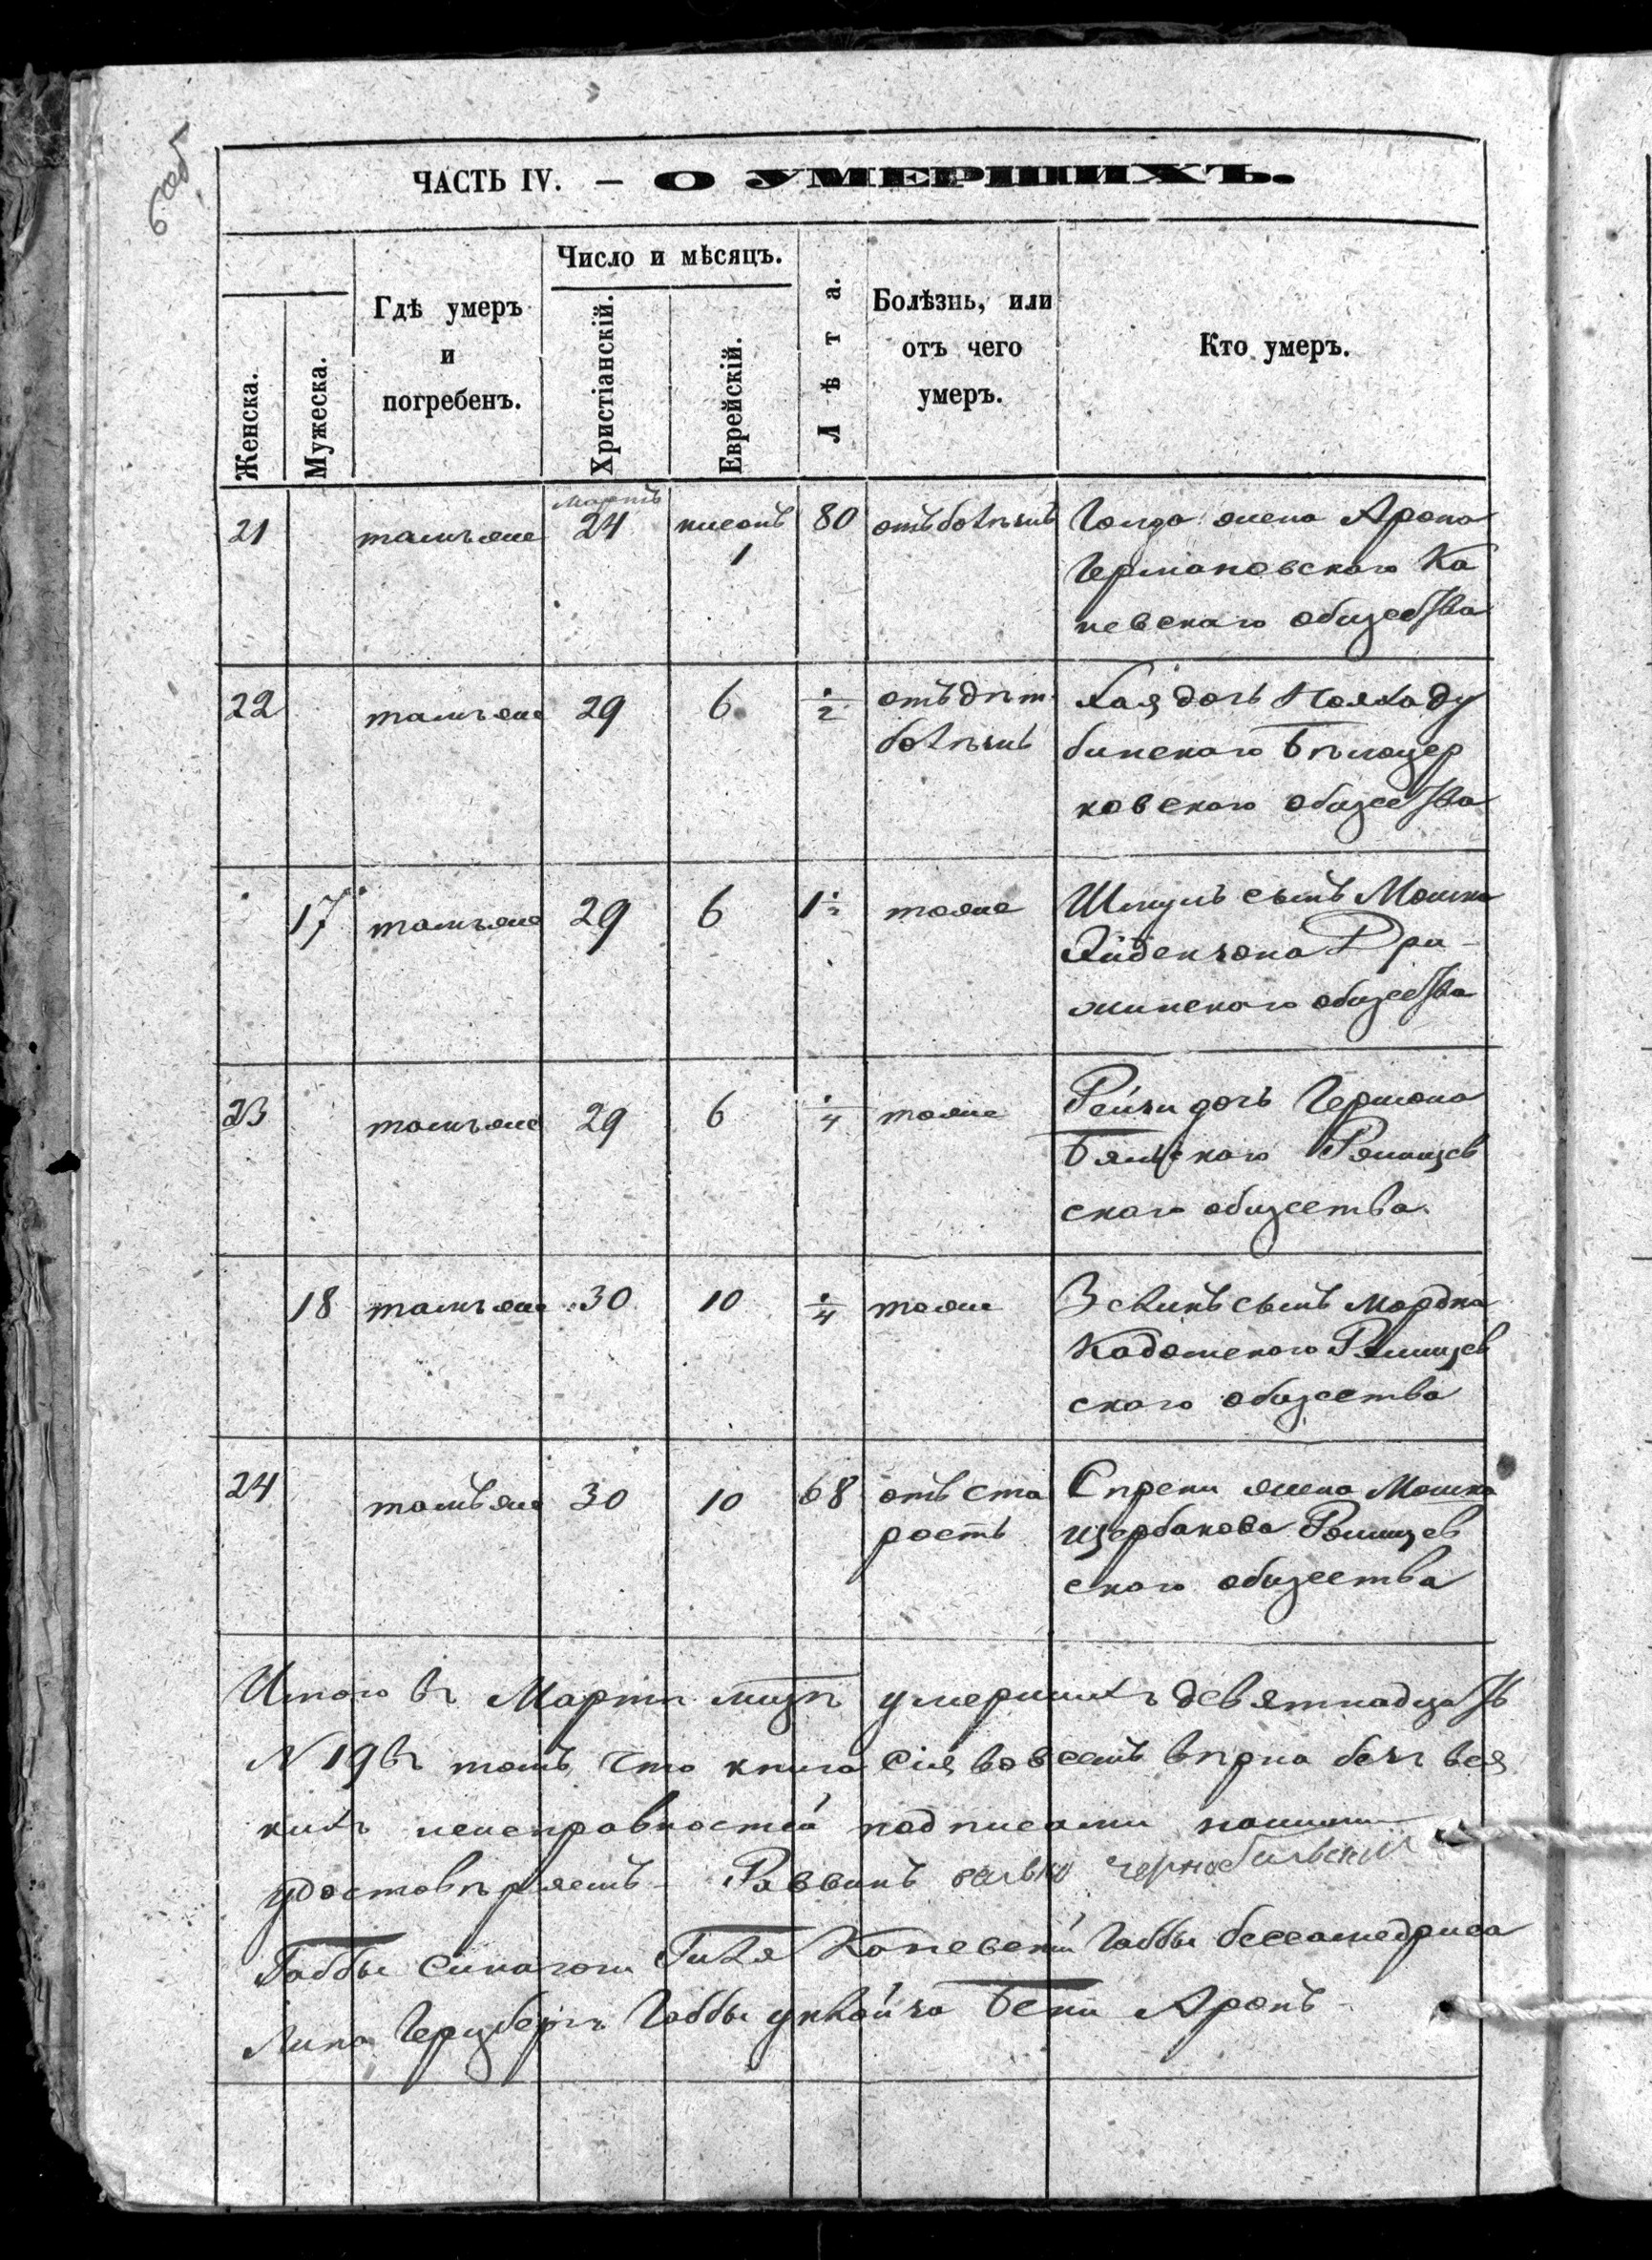 6 об.
ЧАСТЬ IV. — О УМЕРШИХЪ.
Женска.
Мужеска.
Гдѣ умеръ
и
погребенъ.
Число и мѣсяцъ.
Христіанскій.
Еврейскій.
Лѣта.
Болѣзнь, или
отъ чего
умеръ.
Кто умеръ.
Мартъ
21 тамъ же 24 нисонъ 80 отъ болѣзнѣ Голда жена Арона
1 Германовского Ка
невскаго общества
22 тамъ же 29 6 1/2 отъ дѣт. Хая дочь
болѣзнѣ бинскаго Бѣлоцер
ковскаго общества
17 тамъ же 29 6 1 1/2 тоже Шмуль сынъ Мошка
Ри
жинскаго общества
23 тамъ же 29 6 1/4 тоже Рейзи дочь Гершона
Бяльского Ромищев
скаго общества
18 тамъ же 30 10 1/4 тоже Зеликъ сынъ Мордка
Ромищев
скаго общества
24 тамъ же 30 10 68 отъ ста жена Мошка
рость щербакова Ромищев
скаго общества
Итого въ Мартѣ мцѣ умершихъ девятнадцать
N 19 въ томъ что книга сія вовсемъ вѣрна безъ вся
кихъ неисправностей подписами нашими
удостовѣряемъ Раввинъ чернобильский
Габбы синагоги Каневский Габбы бесгамедриса
Герцбергъ Габбы Бени Аронъ